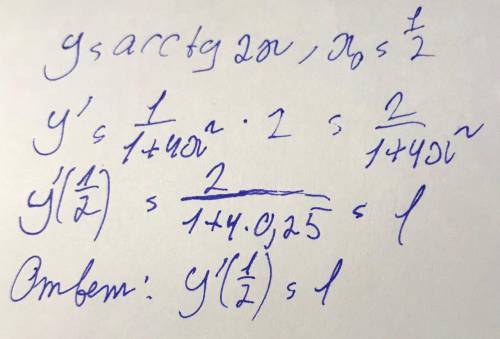 y = arctg 2x, x₀ = 1/2
y' = 1/(1+4x²) · 2 = 2/(1+4x²)
y'(1/2) = 2/(1+4·0,25) = 1
Ответ: y'(1/2) = 1